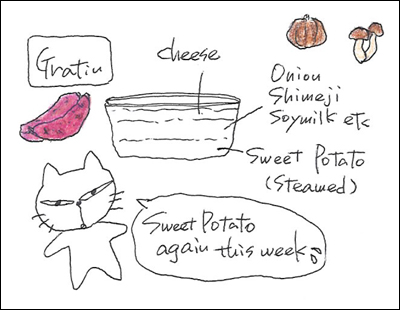 Gratin
cheese
Onion
Shimeji
Soymilk etc
Sweet Potato
(Steamed)
Sweet Potato
again this week